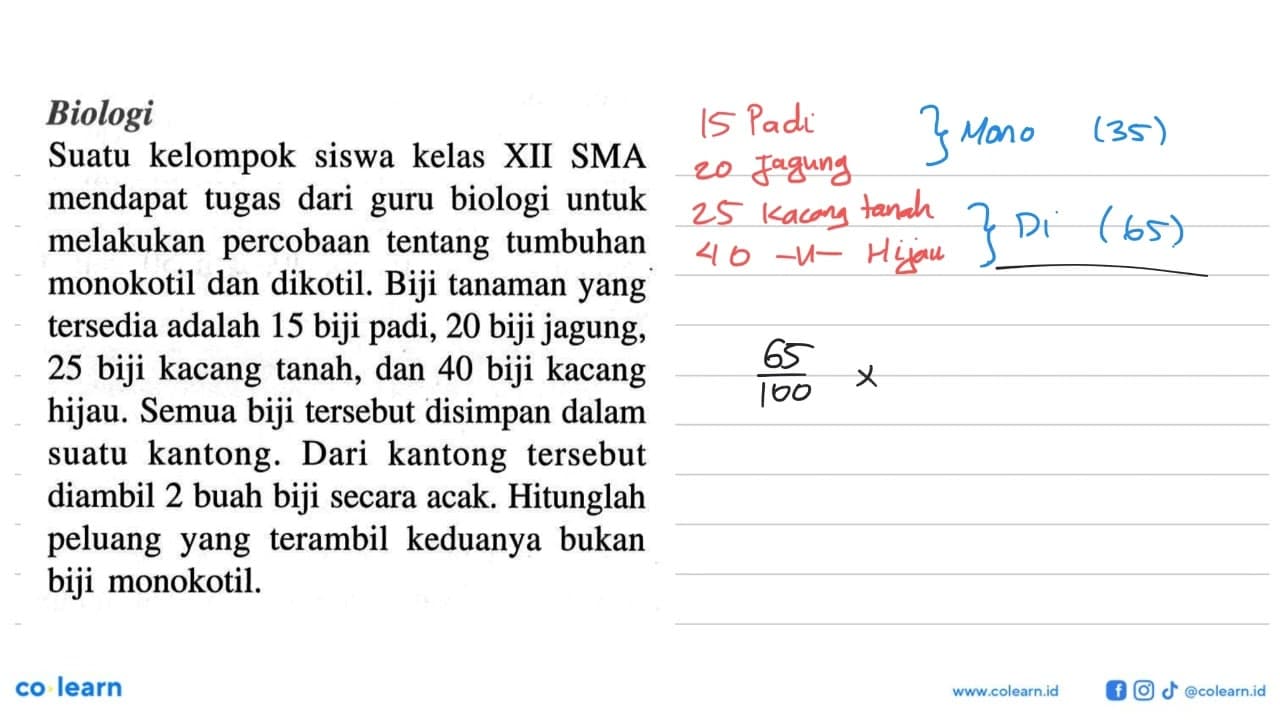 Biologi
Suatu kelompok siswa kelas XII SMA
mendapat tugas dari guru biologi untuk
melakukan percobaan tentang tumbuhan
monokotil dan dikotil. Biji tanaman yang
tersedia adalah 15 biji padi, 20 biji jagung,
25 biji kacang tanah, dan 40 biji kacang
hijau. Semua biji tersebut disimpan dalam
suatu kantong. Dari kantong tersebut
diambil 2 buah biji secara acak. Hitunglah
peluang yang terambil keduanya bukan
biji monokotil.
15 Padi
20 Jagung
} Mono (35)
25 Kacang tanah
40 -u- Hijau
} Di (65)
65
100
×
co learn
www.colearn.id
@colearn.id